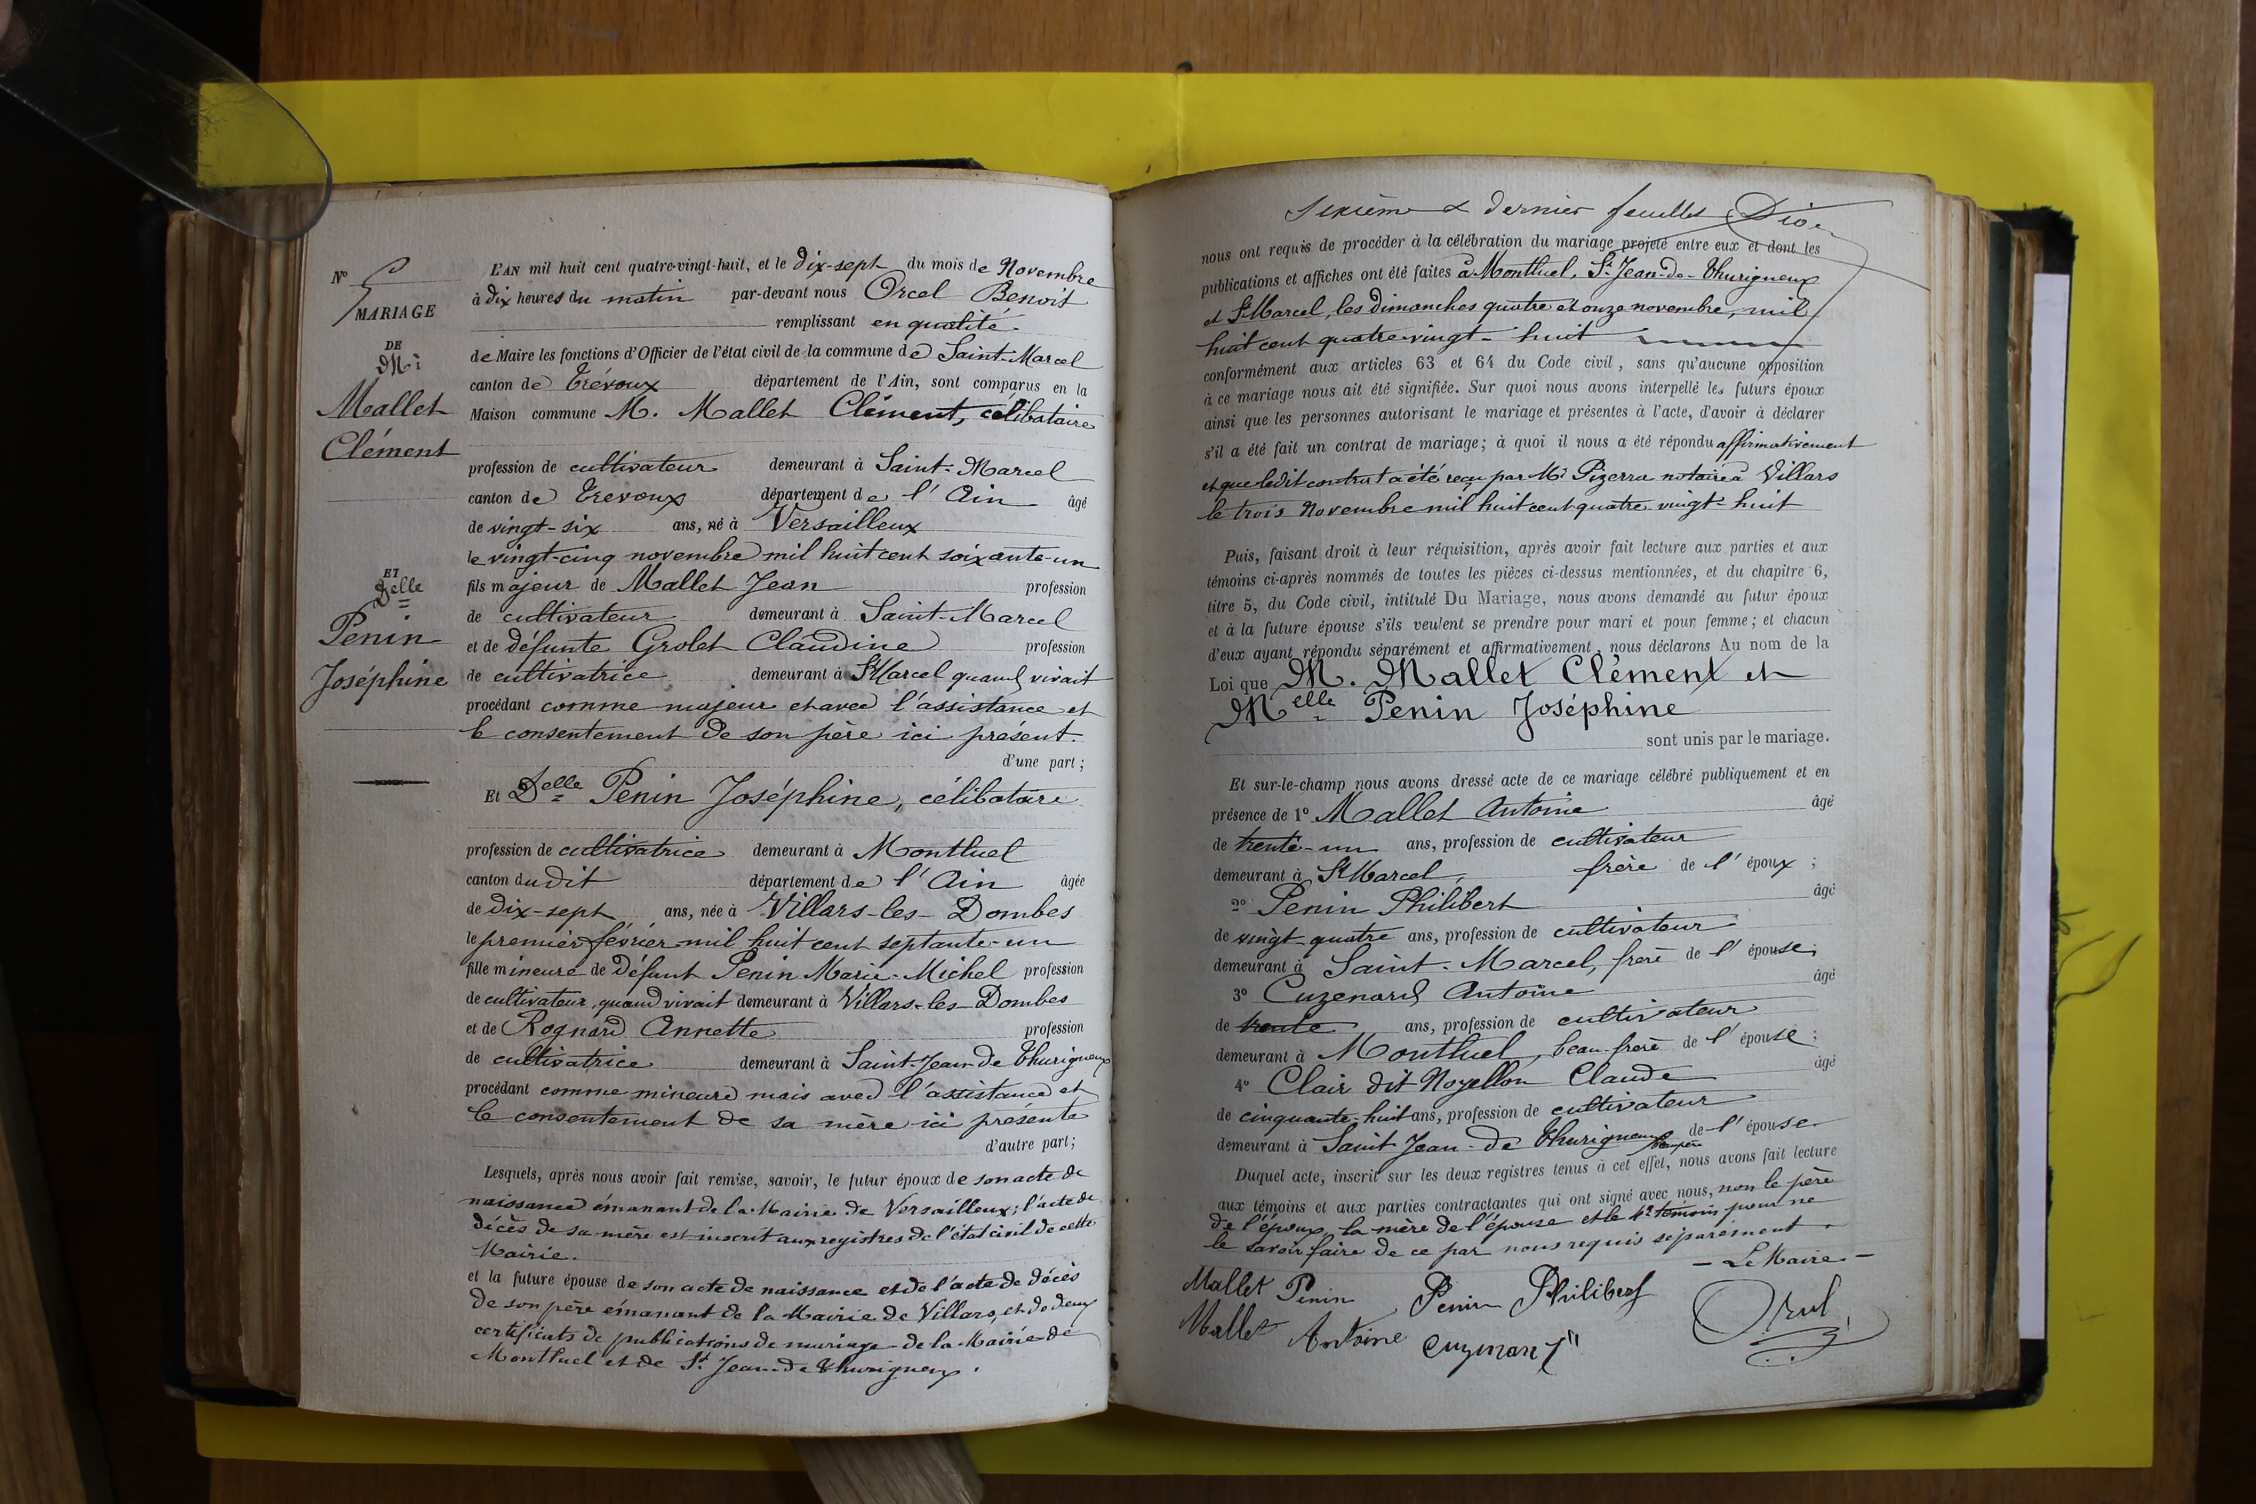 Nº 5
MARIAGE
DE
Mr
Mallet
Clément
ET
Delle
Penin
Joséphine
L'AN mil huit cent quatre-vingt-huit, et le dix-sept du mois de Novembre
à dix heures du matin par-devant nous Orcel Benoit
remplissant en qualité
de Maire les fonctions d'Officier de l'état civil de la commune de Saint-Marcel
canton de Trévoux département de l'Ain, sont comparus en la
Maison commune M. Mallet Clément, célibataire
profession de cultivateur demeurant à Saint-Marcel
canton de Trevoux département de l'Ain âgé
de vingt-six ans, né à Versailleux
le vingt-cinq novembre mil huit cent soixante-un
fils majeur de Mallet Jean profession
de cultivateur demeurant à Saint-Marcel
et de défunte Grolet Claudine profession
de cultivatrice demeurant à St Marcel quand vivait
procédant comme majeur et avec l'assistance et
le consentement de son père ici présent.
d'une part;
Et Delle Penin Joséphine, célibataire
profession de cultivatrice demeurant à Montluel
canton dudit département de l'Ain âgée
de dix-sept ans, née à Villars-les-Dombes
le premier février mil huit cent septante-un
fille mineure de Défunt Penin Marie-Michel profession
de cultivateur, quand vivait demeurant à Villars-les-Dombes
et de Rognard Annette profession
de cultivatrice demeurant à Saint-Jean de Thurigneux
procédant comme mineure mais avec l'assistance et
le consentement de sa mère ici présente
d'autre part;
Lesquels, après nous avoir fait remise, savoir, le futur époux de son acte de
naissance émanant de la Mairie de Versailleux; l'acte de
décès de sa mère est inscrit aux registres de l'état civil de cette
Mairie.
et la future épouse de son acte de naissance et de l'acte de décès
de son père émanant de la Mairie de Villars, et de deux
certificats de publications de mariage de la Mairie de
Montluel et de St Jean-de Thurigneux.
Sixième & dernier feuillet
nous ont requis de procéder à la célébration du mariage projeté entre eux et dont les
publications et affiches ont été faites à Montluel, St Jean-de-Thurigneux
et St Marcel, les dimanches quatre et onze novembre, mil
huit cent quatre vingt-huit
conformément aux articles 63 et 64 du Code civil, sans qu'aucune opposition
à ce mariage nous ait été signifiée. Sur quoi nous avons interpellé les futurs époux
ainsi que les personnes autorisant le mariage et présentes à l'acte, d'avoir à déclarer
s'il a été fait un contrat de mariage; à quoi il nous a été répondu affirmativement
et que ledit contrat a été reçu par Me Pizerra notaire à Villars
le trois Novembre mil huit cent quatre vingt-huit
Puis, faisant droit à leur réquisition, après avoir fait lecture aux parties et aux
témoins ci-après nommés de toutes les pièces ci-dessus mentionnées, et du chapitre 6,
titre 5, du Code civil, intitulé Du Mariage, nous avons demandé au futur époux
et à la future épouse s'ils veulent se prendre pour mari et pour femme; et chacun
d'eux ayant répondu séparément et affirmativement, nous déclarons Au nom de la
Loi que M. Mallet Clément et
Melle Penin Joséphine
sont unis par le mariage.
Et sur-le-champ nous avons dressé acte de ce mariage célébré publiquement et en
présence de 1º Mallet Antoine âgé
de trente-un ans, profession de cultivateur
demeurant à St Marcel, frère de l'époux;
2º Penin Philibert âgé
de vingt-quatre ans, profession de cultivateur
demeurant à Saint-Marcel, frère de l'épouse;
3º Cuzenard Antoine âgé
de trente ans, profession de cultivateur
demeurant à Montluel, beau-frère de l'épouse;
4º Clair dit Noyellon Claude âgé
de cinquante-huit ans, profession de cultivateur
demeurant à Saint Jean-de Thurigneux beau père de l'épouse.
Duquel acte, inscrit sur les deux registres tenus à cet effet, nous avons fait lecture
aux témoins et aux parties contractantes qui ont signé avec nous, non le père
de l'époux, la mère de l'épouse et le 4e témoin pour ne
le savoir faire de ce par nous requis séparément.
Le Maire
Mallet Penin Penin Philibert
Mallet Antoine